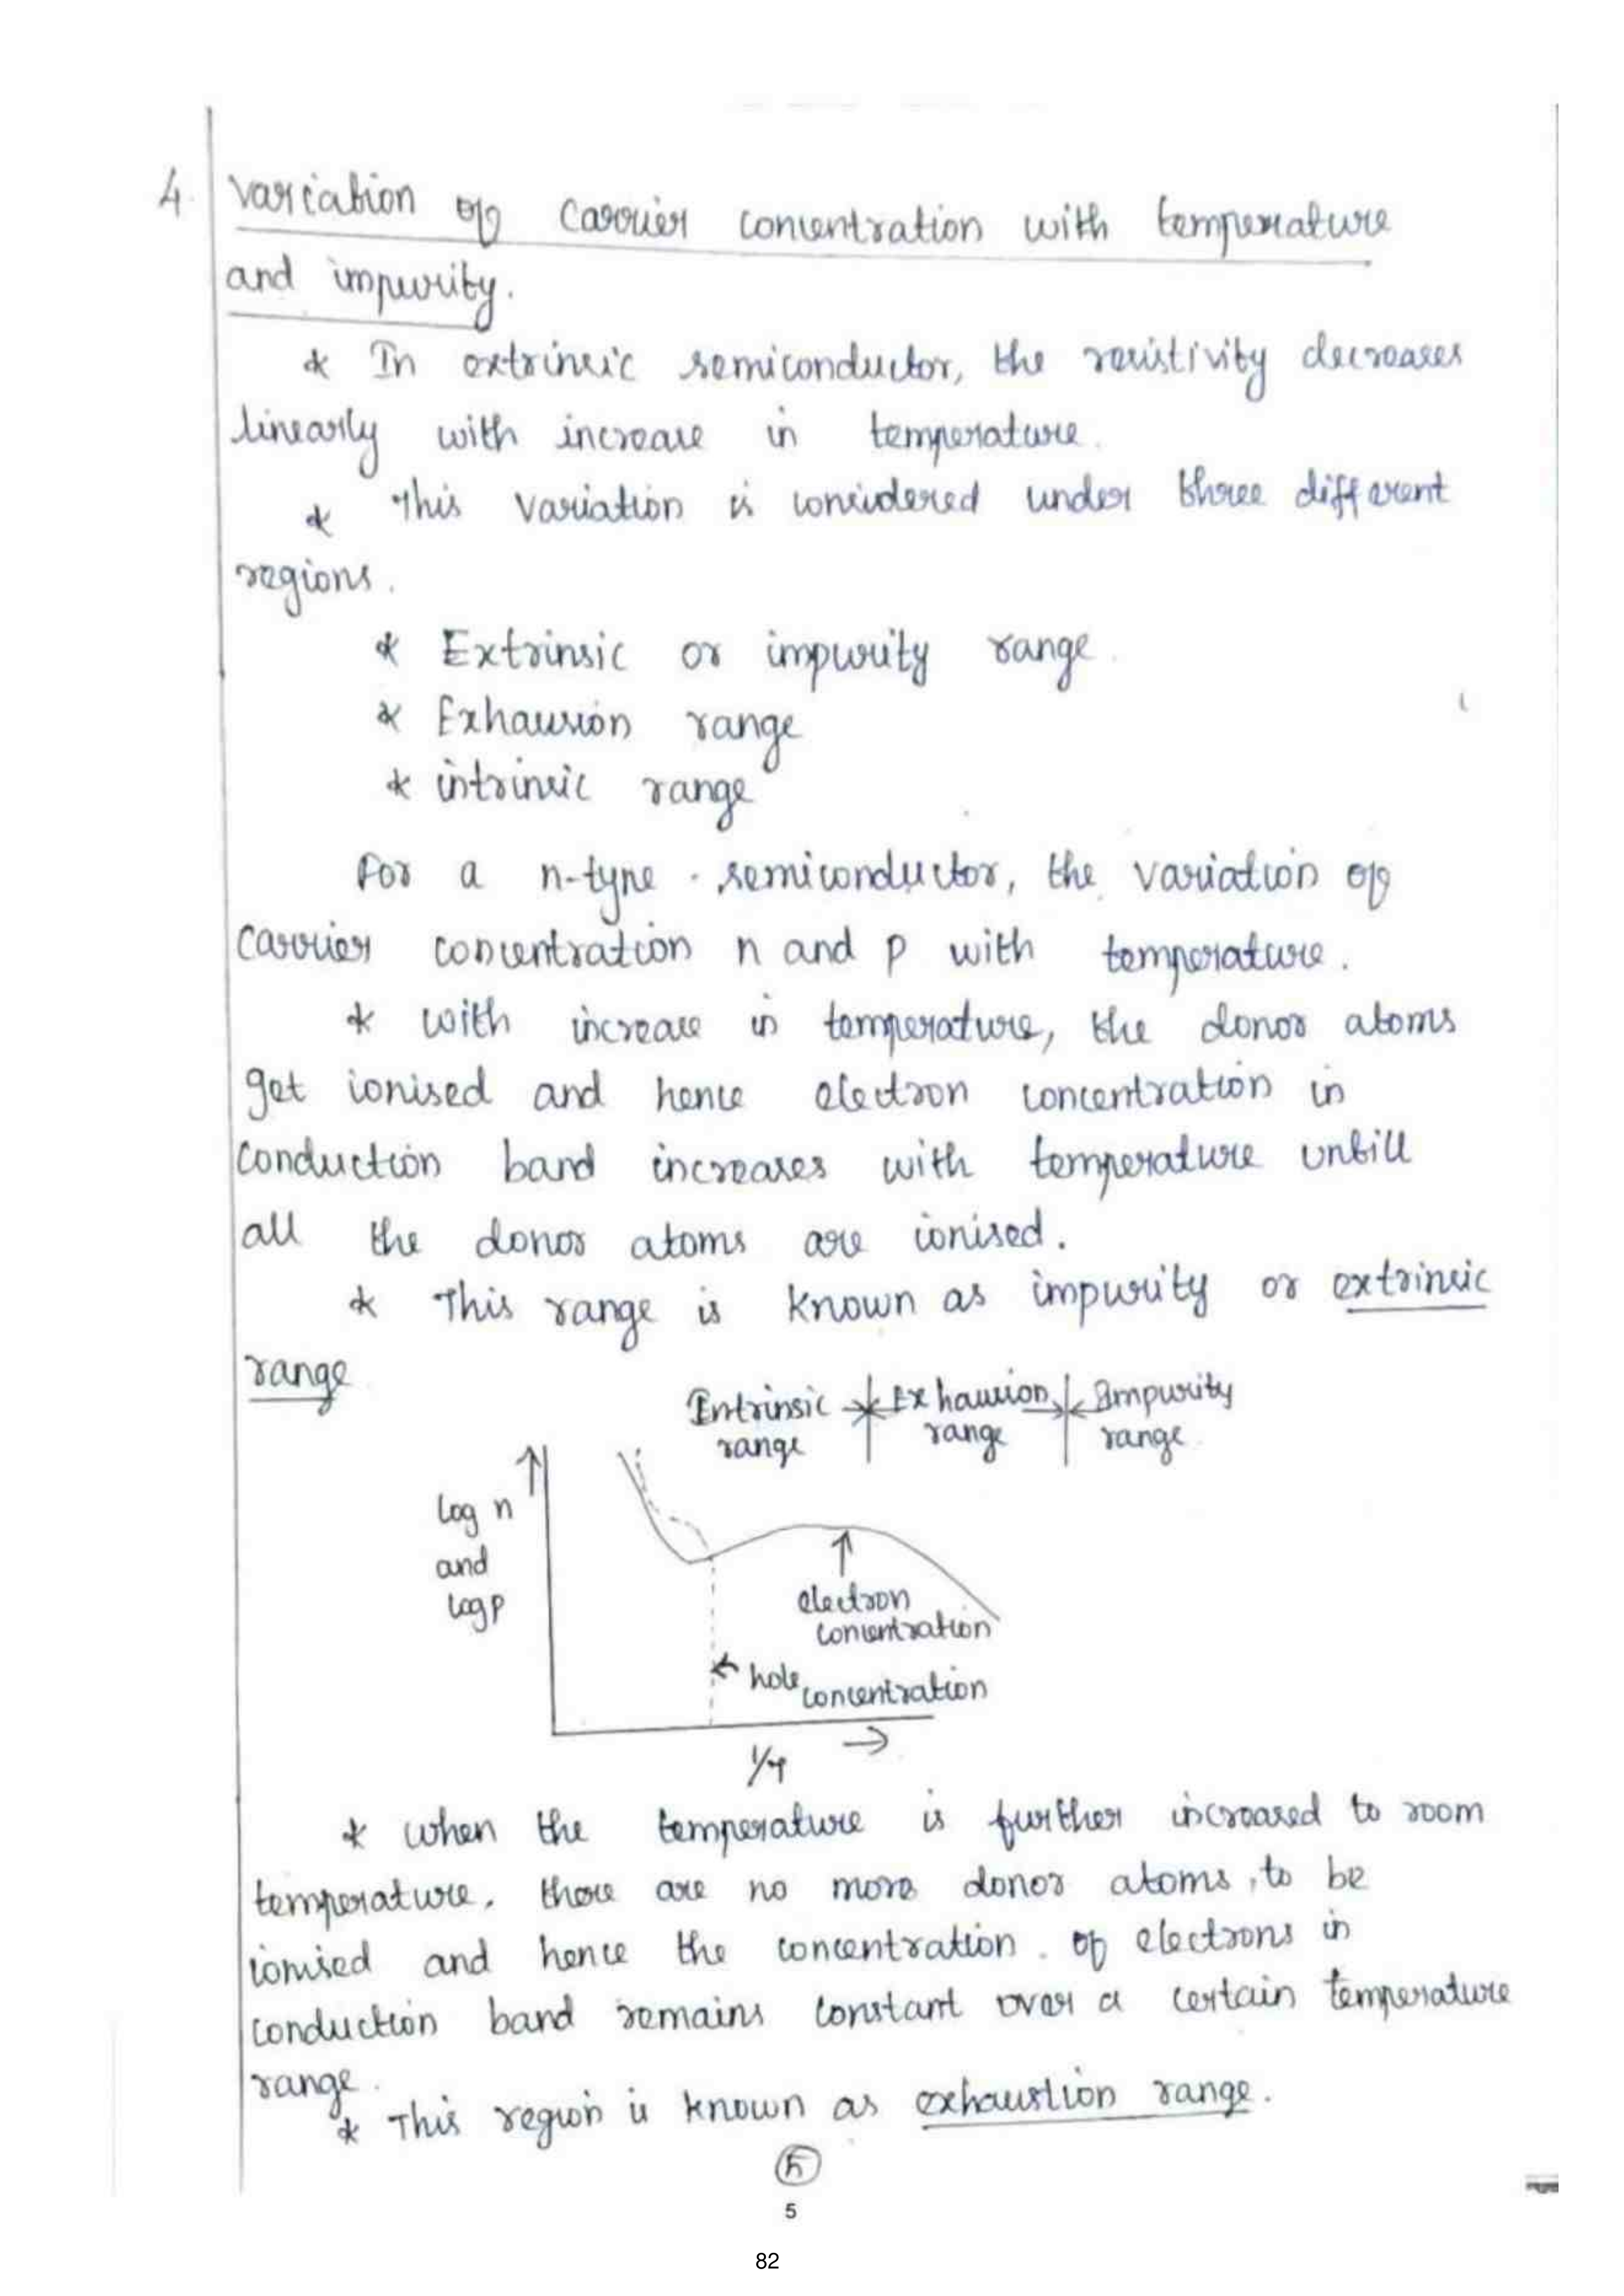 4. Variation of carrier concentration with temperature
and impurity.
* In extrinsic semiconductor, the resistivity decreases
linearly with increase in temperature.
* This variation is considered under three different
regions.
* Extrinsic or impurity range.
* Exhausion range
* intrinsic range
For a n-type semiconductor, the variation of
carrier concentration n and p with temperature.
* with increase in temperature, the donor atoms
get ionised and hence electron concentration in
conduction band increases with temperature untill
all the donor atoms are ionised.
* This range is known as impurity or extrinsic
range
Intrinsic range
Exhausion range
Impurity range
log n
and
log p
electron
concentration
hole concentration
1/T
* when the temperature is further increased to room
temperature. there are no more donor atoms, to be
ionised and hence the concentration of electrons in
conduction band remains constant over a certain temperature
range.
* This region is known as exhaustion range.
5
5
82